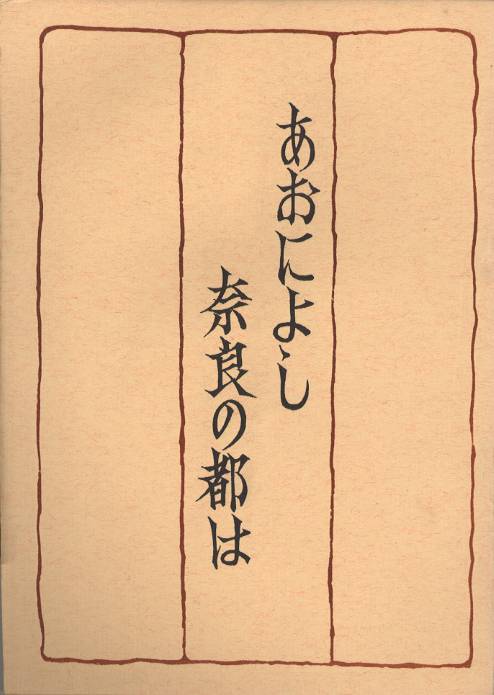 あおによゝし
奈良の都は